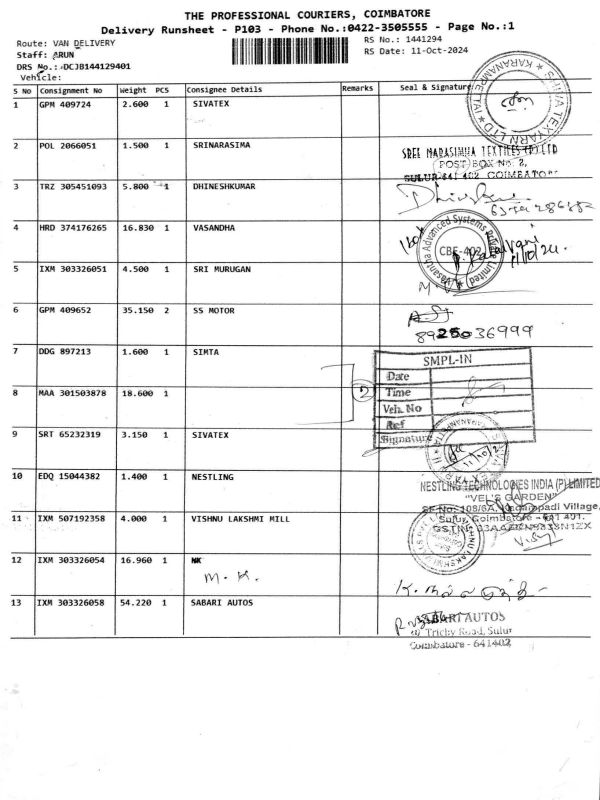 THE PROFESSIONAL COURIERS, COIMBATORE
Delivery Runsheet - P103 - Phone No.:0422-3505555 - Page No.:1
Route: VAN DELIVERY
Staff: ARUN
DRS No.: DCJB144129401
Vehicle:
RS No.: 1441294
RS Date: 11-Oct-2024
S No Consignment No Weight PCS Consignee Details Remarks Seal & Signature
1 GPM 409724 2.600 1 SIVATEX
SHIVA TEXYARN LTD ★ KARANAMPETTAI ★
2 POL 2066051 1.500 1 SRINARASIMA
SREE NARASIMHA TEXTILES (P) LTD
(POST) BOX No. 2,
SULUR-641 402 COIMBATORE
3 TRZ 305451093 5.800 1 DHINESHKUMAR
4 HRD 374176265 16.830 1 VASANDHA
Vasantha Advanced Systems Private Limited
CBE-402
11/10/24
5 IXM 303326051 4.500 1 SRI MURUGAN
6 GPM 409652 35.150 2 SS MOTOR
8925036999
7 DDG 897213 1.600 1 SIMTA
SMPL-IN
Date
Time
Veh. No
Ref
Signature
8 MAA 301503878 18.600 1
2
9 SRT 65232319 3.150 1 SIVATEX
10 EDQ 15044382 1.400 1 NESTLING
NESTLING TECHNOLOGIES INDIA (P) LIMITED
"VEL'S GARDEN"
Village,
Sulur, Coimbatore - 641 401.
11 IXM 507192358 4.000 1 VISHNU LAKSHMI MILL
12 IXM 303326054 16.960 1 MK
M. K.
13 IXM 303326058 54.220 1 SABARI AUTOS
SABARI AUTOS
Trichy Road, Sulur
Coimbatore - 641402